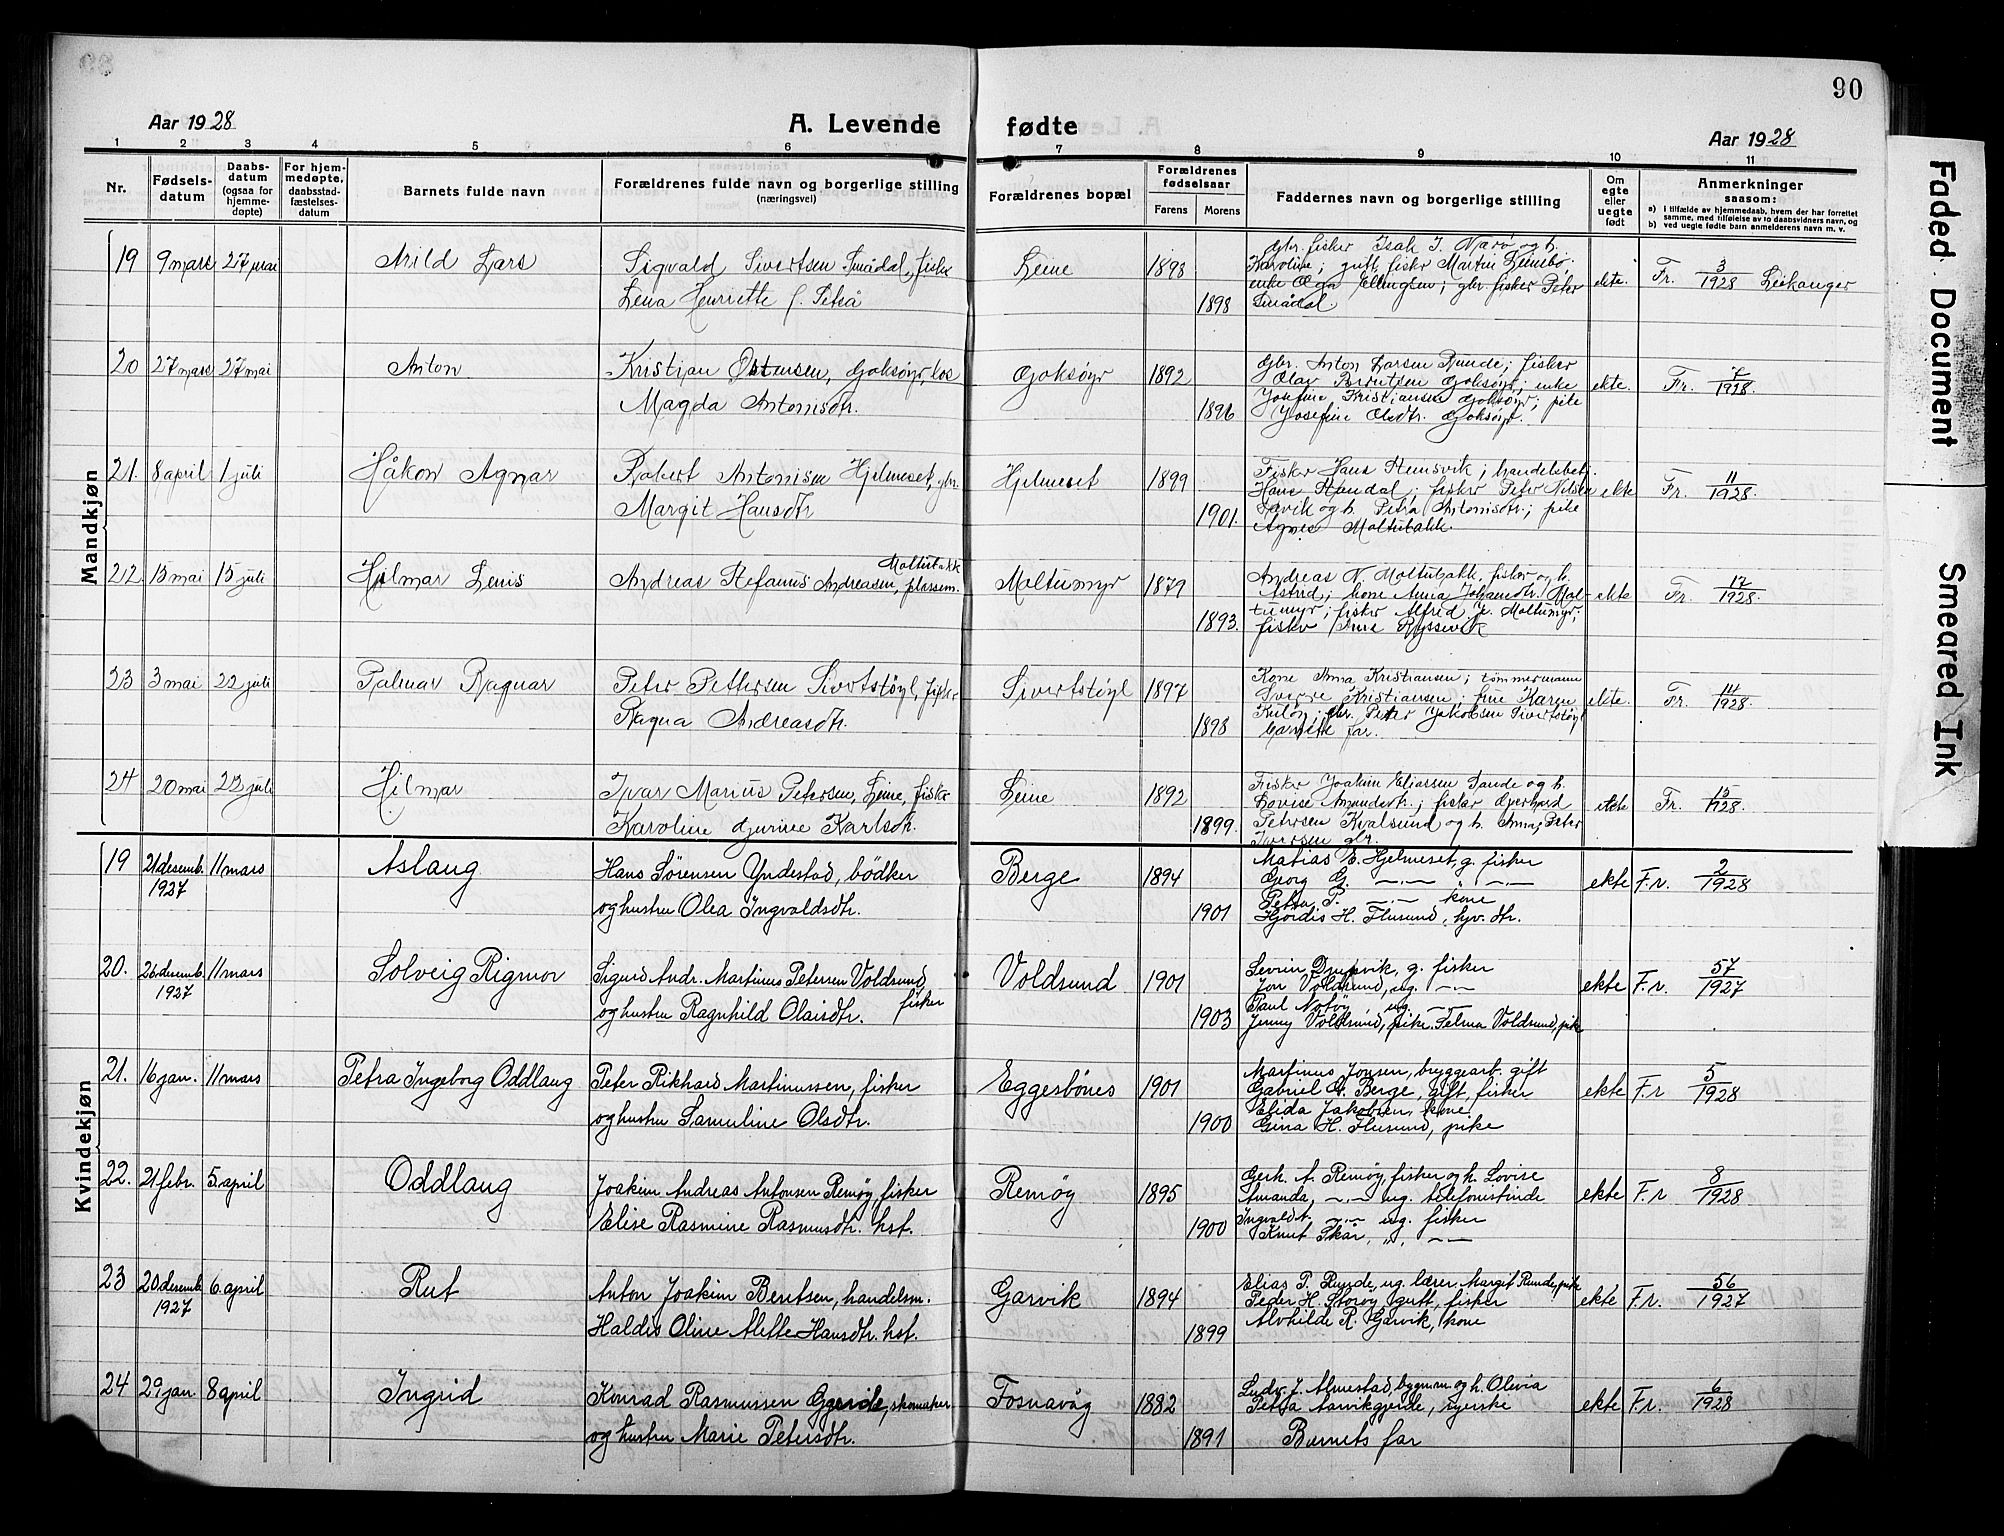 90
Aar 1928
A. Levende fødte
Aar 1928
1 2 3 4 5 6 7 8 9 10 11
Nr.
Fødselsdatum
Daabsdatum (ogsaa for hjemmedøpte)
For hjemmedøpte, daabsstadfæstelsesdatum
Barnets fulde navn
Forældrenes fulde navn og borgerlige stilling (næringsvei)
Forældrenes bopæl
Forældrenes fødselsaar
Farens Morens
Faddernes navn og borgerlige stilling
Om egte eller uegte født
Anmerkninger saasom:
a) I tilfælde av hjemmedaab, hvem der har forrettet samme, med tilføielse av to daabsvidners navn, og
b) ved uegte fødte barn anmelderens navn m. v.
Mandkjøn
19 9 mars 27 mai Arild Lars
Sigvald Sivertsen Smådal, fisker
Lena Henriette f. Peterå
Leine 1898 1898
gbr. fisker Isak I. Nærø og h.
Karoline; gutt, fisker Martin Leinebø;
enke Olga Ellingsen; gbr. fisker Peter
Smådal.
ekte. Fr. 3/1928 Leikanger
20 27 mars 27 mai Anton
Kristian Østensen, Goksøyr, los
Magda Antonisdtr.
Goksøyr 1892 1896
Gbr. Anton Larsen Runde; fisker
Olav Berntsen Goksøyr; enke
Josefine Kristiansen Goksøyr; pike
Josefine Olsdtr. Goksøyr.
ekte. Fr. 7/1928.
21. 8 april 1 juli Håkon Agnar
Robert Antonisen Hjelmeset, gbr.
Margit Hansdtr
Hjelmeset 1899 1901.
Fisker Hans Stemsvik; handelsbetj.
Hans Stendal; fisker Peter Nilsen
Savik og h. Petra Antonisdtr.; pike
Agnes Moltubakk.
ekte Fr. 11/1928.
22. 15 mai 15 juli Hilmar Lenis
Moltubakk
Andreas Stefanus Andreasen, plassem.
Moltumyr 1879 1893.
Andreas N. Moltubakk, fisker og h.
Astrid; kone Anna Johansdtr. Moltumyr; fisker Alfred J. Moltumyr;
fisker Arne Røssevik
ekte Fr. 17/1928.
23 3 mai 22 juli Palmar Ragnar
Peter Pettersen Sivertstøyl, fisker
Ragna Andreasdtr.
Sivertstøyl 1897 1898
Kone Anna Kristiansen; tømmermann
Sverre Kristiansen; frue Karen
gbr. Peter Jakobsen Sivertstøyl
Barnets far.
ekte. Fr. 14/1928.
24 20 mai 22 juli Hilmar
Ivar Marius Petersen, Leine, fisker
Karoline Gurine Karlsdtr.
Leine 1892 1899.
Fisker Joakim Eliassen Sande og h.
Lovise Amundsdtr.; fisker Gerhard
Petersen Kvalsund og h. Anna; Peter
Iversen gbr.
ekte Fr. 15/1928.
Kvindekjøn
19 21 desemb. 1927 11 mars Aslaug
Hans Sørensen Yndestad, bødker
og hustru Olea Ingvaldsdtr.
Berge 1894 1901
Matias E. Hjelmeset, g. fisker
Georg G. —"— " —"—
Petra P. —"— kone
Hjørdis H. Flusund, hjv. dtr.
ekte F.r. 2/1928
20. 26 desemb. 1927 11 mars Solveig Rigmor
Sigurd Andr. Martinus Petersen Voldsund,
og hustru Ragnhild Olaisdtr. fisker
Voldsund 1901 1903
Sevrin Dragsvik, g. fisker
Jon Voldsund, ug. —"—
Paul Notøy ug. —
Jenny Voldsund, pike. Telma Voldsund, pike
ekte F.r. 57/1927
21. 16 jan. 11 mars Petra Ingeborg Oddlaug
Peter Rikhard Martinussen, fisker
og hustru Samuline Olsdtr.
Eggesbønes 1901 1900
Martinus Jonsen, bryggearb. gift
Gabriel G. Berge, gift, fisker
Elida Jakobsen, kone
Gina H. Flusund, pike
ekte F.r 5/1928
22. 21 febr. 5. april Oddlaug
Joakim Andreas Antonsen Remøy, fisker
Elise Rasmine Rasmusdtr. hst.
Remøy 1895 1900
Gerh. A. Remøy, fisker og h. Lovise
Amanda, —"— ug. telefonistinde
Ingvald A. —"— ug. fisker
Knut Skår, " —"—
ekte F.r 8/1928
23 20 desemb. 1927 6. april Rut
Anton Joakim Berntsen, handelsm.
Haldis Oline Alette Hansdtr. hst.
Garvik 1894 1899
Elias P. Runde, ug. lærer, Margit Runde, pike
Peder H. Storøy, gutt, fisker
Alvhilde R. Garvik, kone
ekte F.r. 56/1927
24 29 jan. 8 april Ingrid
Konrad Rasmussen Gjerde, skomaker
og hustru Marie Petersdtr.
Fosnavåg 1882 1891
Ludv. J. Almestad, bygm. og h. Olivia
Petra Aarvikgjerde, syerske
Barnets far
ekte F.r. 6/1928
Faded Document
Smeared Ink